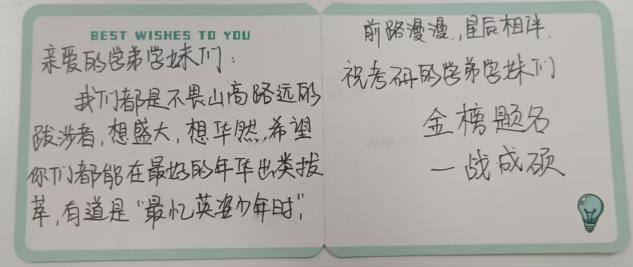 BEST WISHES TO YOU
亲爱的学弟学妹们：
我们都是不畏山高路远的
跋涉者，想盛大，想华然，希望
你们都能在最好的年华出类拔
萃，有道是“最忆英姿少年时”，
前路漫漫，星后相伴.
祝考研的学弟学妹们
金榜题名
一战成硕